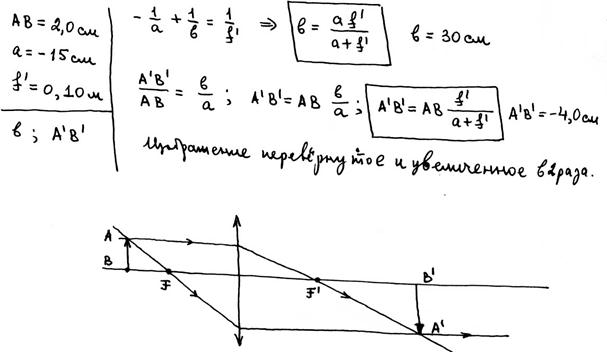 AB = 2,0 см
a = -15 см
f' = 0,10 м
b ; A'B'
-1/a + 1/b = 1/f' ⇒ b = af'/(a+f') b = 30 см
A'B'/AB = b/a ; A'B' = AB b/a ; A'B' = AB f'/(a+f') A'B' = -4,0 см
Изображение перевёрнутое и увеличенное в 2 раза.
A
B
F
F'
B'
A'